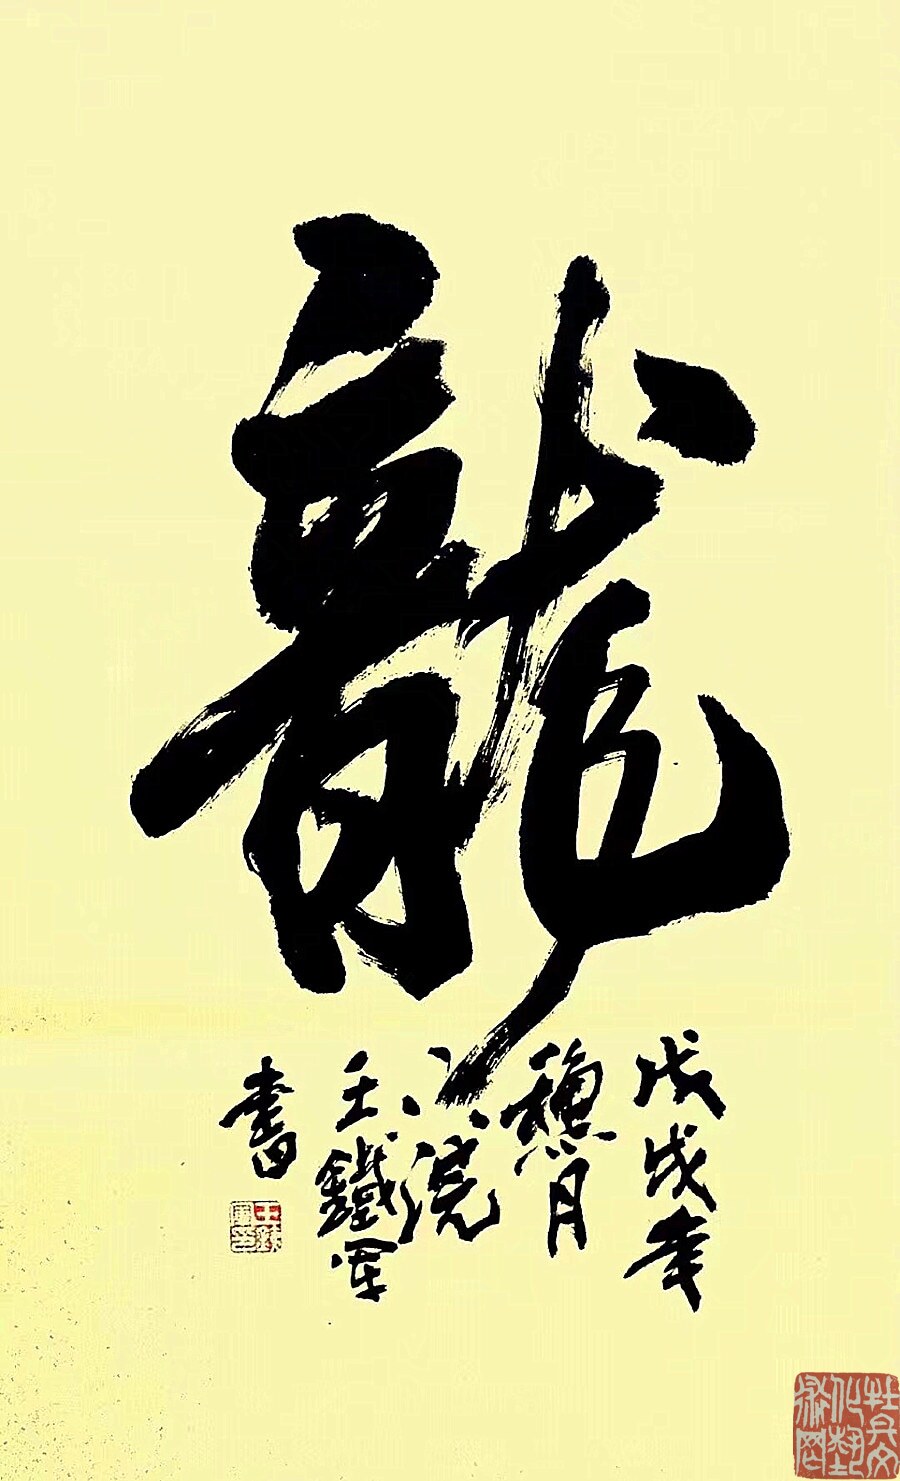 龍
戊戌年
穐月
浣
王鐵軍
書